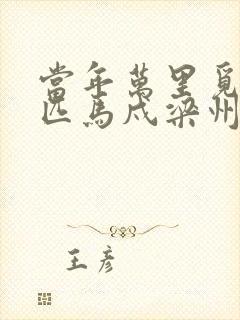 當年萬里覓
匹馬戍梁州
王彥